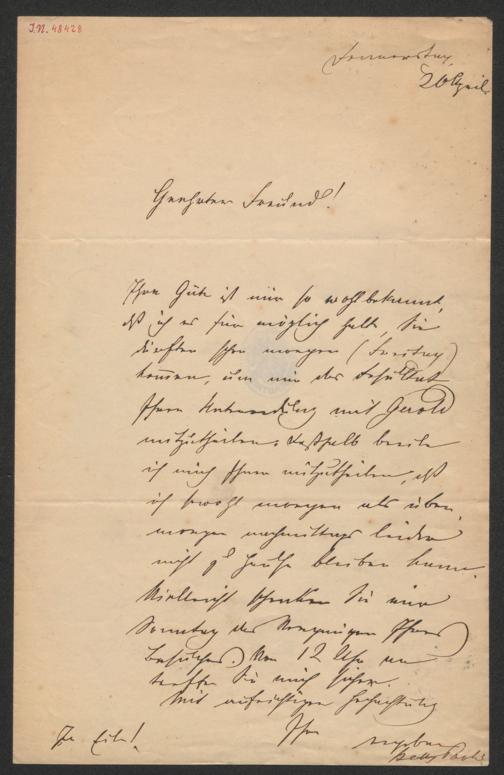 J.N. 48428
Donnerstag,
20 April
Geehrter Freund!
Ihre Güte ist mir so wohlbekannt,
daß ich es für möglich halte, Sie
dürften schon morgen (Freitag)
kommen, um mir das Resultat
Ihrer Unterredung mit Gerold
mitzutheilen; deßhalb beeile
ich mich Ihnen mitzutheilen, daß
ich sowohl morgen als über-
morgen nachmittags leider
nicht zu Hause bleiben kann.
Vielleicht schenken Sie mir
Sonntag das Vergnügen Ihres
Besuches. Von 12 Uhr an
treffen Sie mich sicher.
Mit aufrichtiger Hochachtung
Ihre ergebene
In Eile!
Betty Paoli